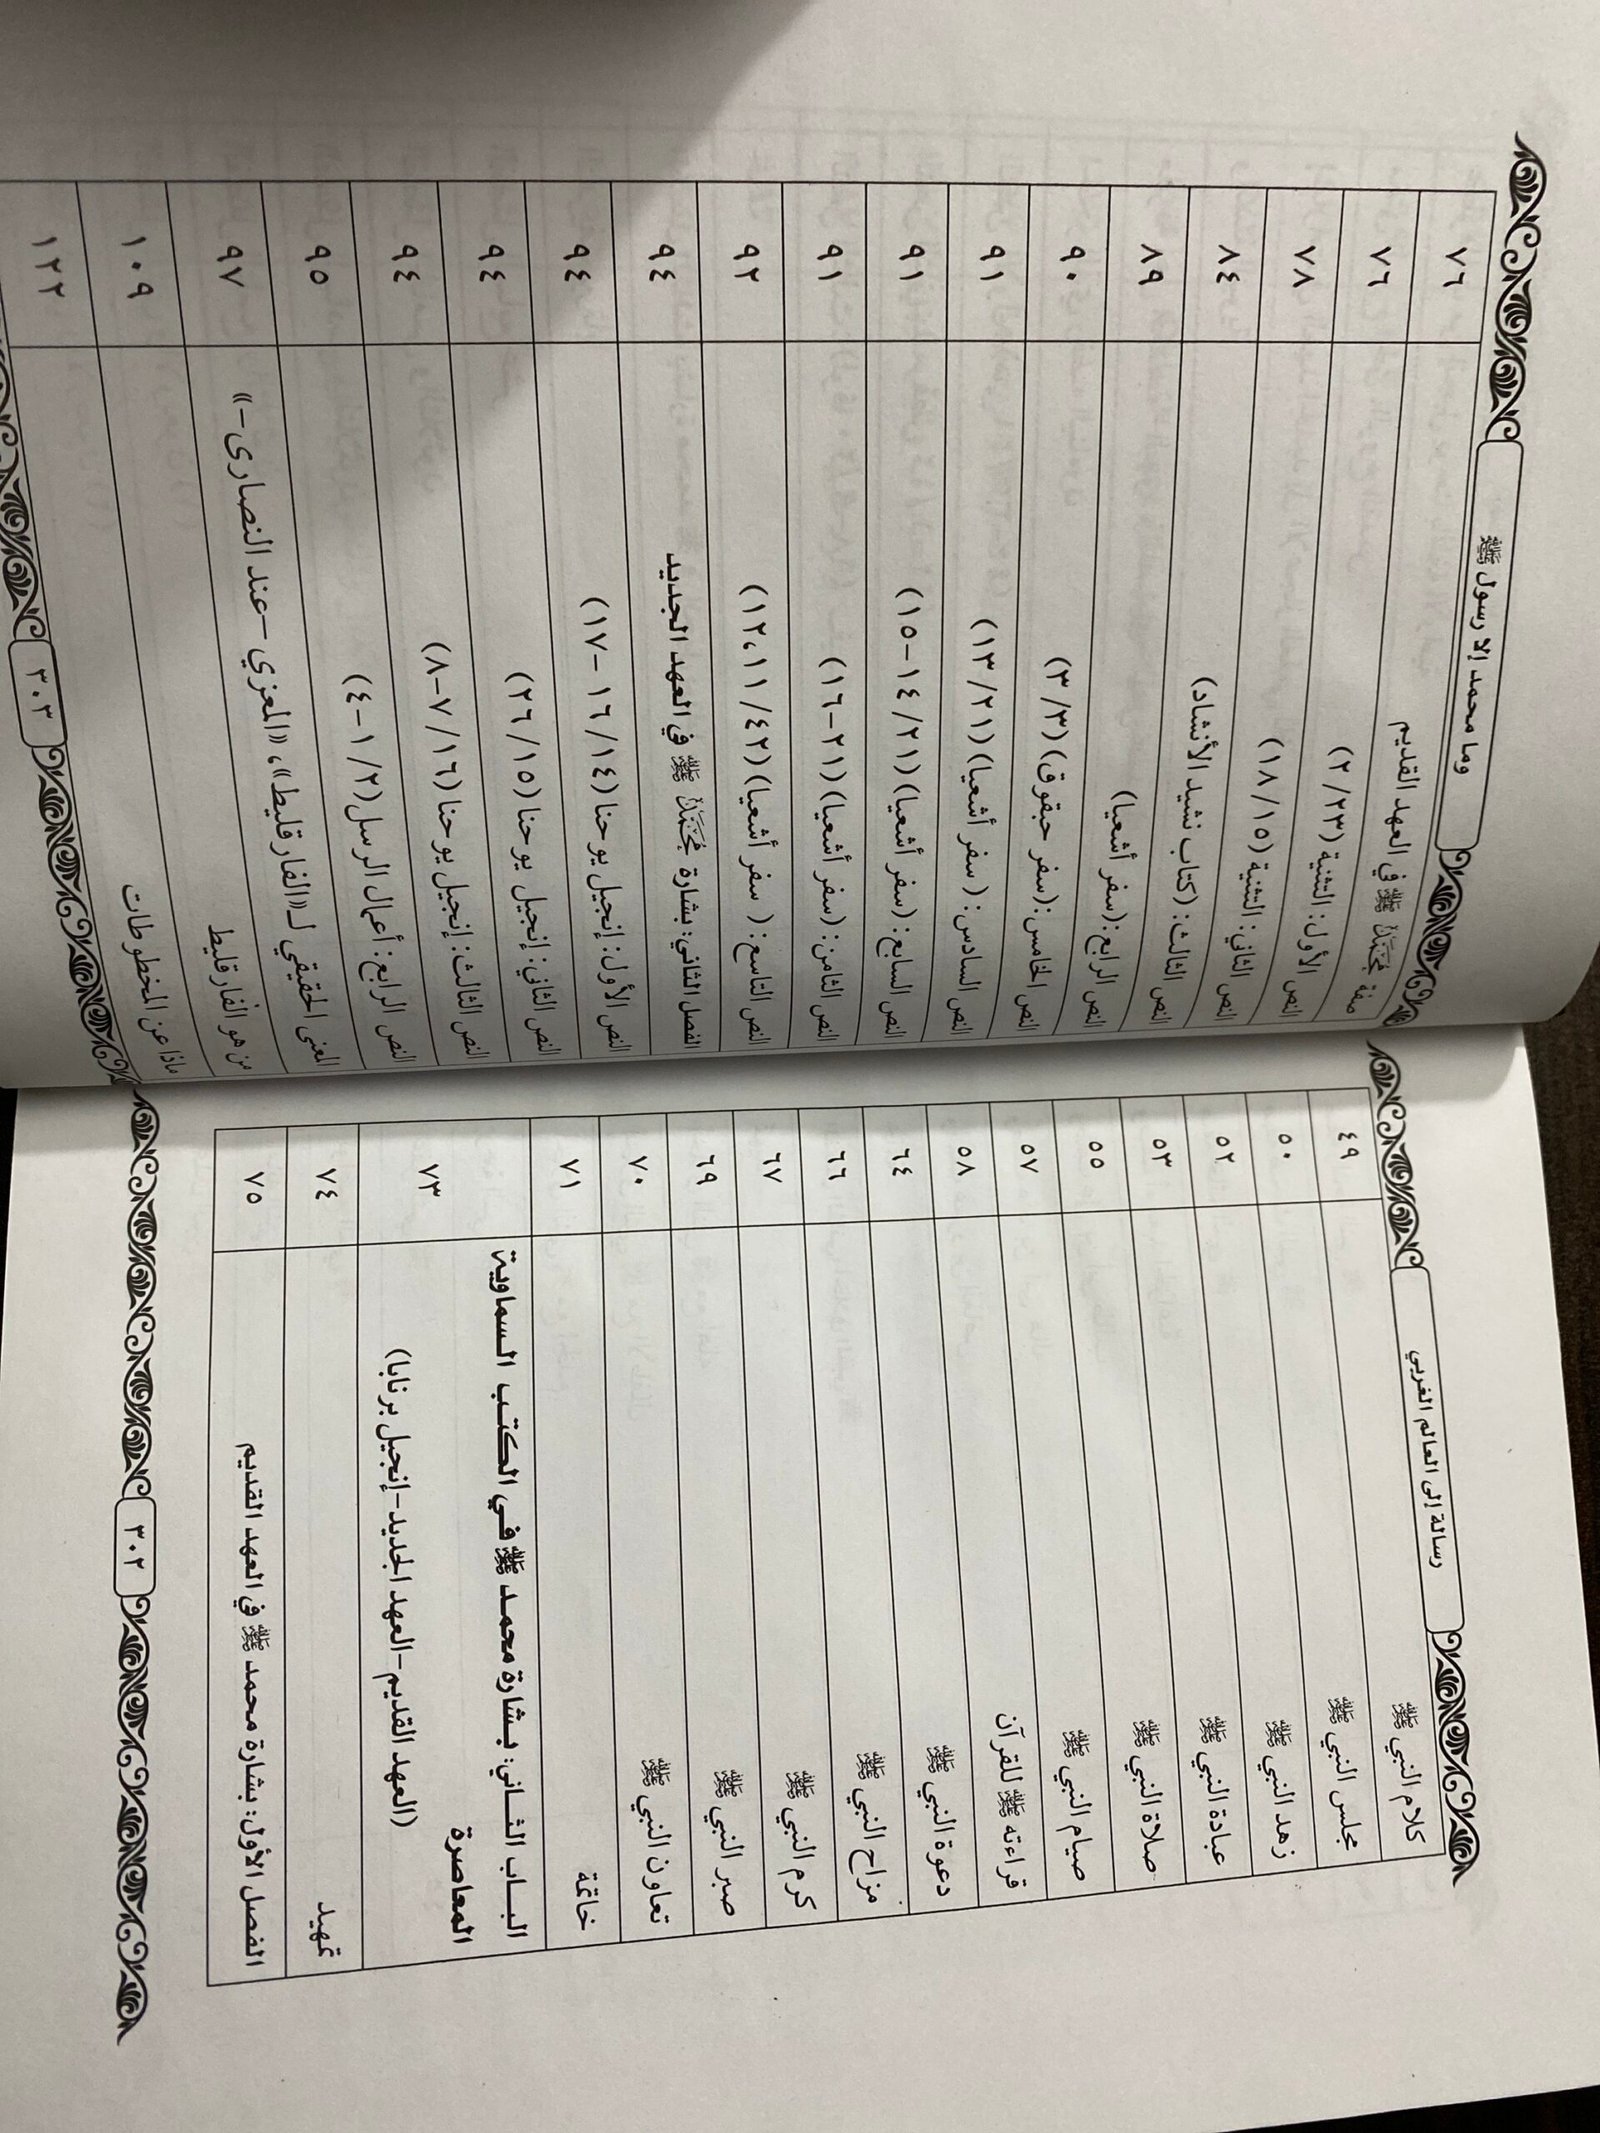 رسالة إلى العالم الغربي
كلام النبي ﷺ ٤٩
مجلس النبي ﷺ ٥٠
زهد النبي ﷺ ٥٢
عبادة النبي ﷺ ٥٣
صلاة النبي ﷺ ٥٥
صيام النبي ﷺ ٥٧
قراءته ﷺ للقرآن ٥٨
دعوة النبي ﷺ ٦٤
مزاح النبي ﷺ ٦٦
كرم النبي ﷺ ٦٧
صبر النبي ﷺ ٦٩
تعاون النبي ﷺ ٧٠
خاتمة ٧١
البـاب الثـاني: بـشارة محمـد ﷺ فـي الكتـب الـسماوية
المعاصرة
(العهد القديم-العهد الجديد-إنجيل برنابا) ٧٣
تمهيد ٧٤
الفصل الأول: بشارة محمد ﷺ في العهد القديم ٧٥
٣٠٢
وما محمد إلا رسول ﷺ
صفة مُحَمَّد ﷺ في العهد القديم ٧٦
النص الأول: التثنية (٢/٢٣) ٧٦
النص الثاني: التثنية (١٨/١٥) ٧٨
النص الثالث: (كتاب نشيد الأنشاد) ٨٤
النص الرابع: (سفر أشعيا) ٨٩
النص الخامس: (سفر حبقوق) (٣/٣) ٩٠
النص السادس: (سفر أشعيا) (١٣/٢١) ٩١
النص السابع: (سفر أشعيا) (١٤/٢١-١٥) ٩١
النص الثامن: (سفر أشعيا) (٢١-١٦) ٩١
النص التاسع: (سفر أشعيا) (١٢،١١/٤٢) ٩٢
الفصل الثاني: بشارة مُحَمَّد ﷺ في العهد الجديد ٩٤
النص الأول: إنجيل يوحنا (١٦/١٤-١٧) ٩٤
النص الثاني: إنجيل يوحنا (٢٦/١٥) ٩٤
النص الثالث: إنجيل يوحنا (٧/١٦-٨) ٩٤
النص الرابع: أعمال الرسل (١/٢-٤) ٩٥
المعنى الحقيقي لـ«الفارقليط»، «المعزي -عند النصارى-» ٩٧
من هو الفارقليط ١٠٩
ماذا عن المخطوطات ١٢٢
٣٠٣